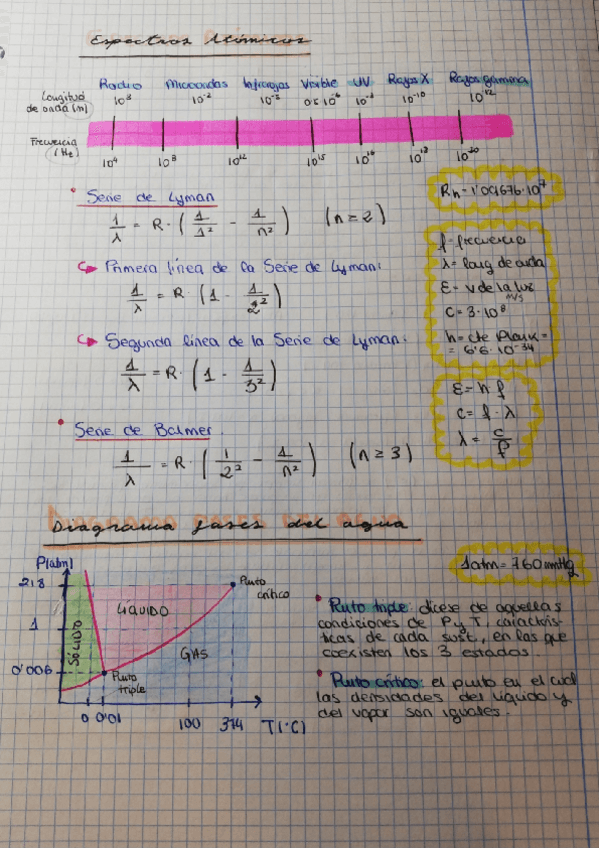 Espectros Atómicos
Radio Microondas Infrarrojos Visible UV Rayos X Rayos gamma
Longitud de onda (m) 10³ 10⁻² 10⁻⁵ 0'5·10⁻⁶ 10⁻⁸ 10⁻¹⁰ 10⁻¹²
Frecuencia (Hz) 10⁴ 10⁸ 10¹² 10¹⁵ 10¹⁶ 10¹⁸ 10²⁰
• Serie de Lyman
1/λ = R · (1/1² - 1/n²) (n≥2)
Primera línea de la Serie de Lyman:
1/λ = R · (1 - 1/2²)
Segunda línea de la Serie de Lyman:
1/λ = R · (1 - 1/3²)
• Serie de Balmer
1/λ = R · (1/2² - 1/n²) (n≥3)
f = frecuencia
λ = long de onda
E = v de la luz
m/s
C = 3·10⁸
h = cte Plank =
= 6'6·10⁻³⁴
E = h f
c = f · λ
λ = c/f
Diagrama fases del agua
1atm = 760mmHg
P(atm)
218
1
0'006
SÓLIDO
LÍQUIDO
GAS
Punto crítico
Punto triple
0 0'01 100 374 T(°C)
• Punto triple: dícese de aquellas
condiciones de P y T, caracterís-
ticas de cada sust., en las que
coexisten los 3 estados.
• Punto crítico: el punto en el cual
las densidades del líquido y
del vapor son iguales.